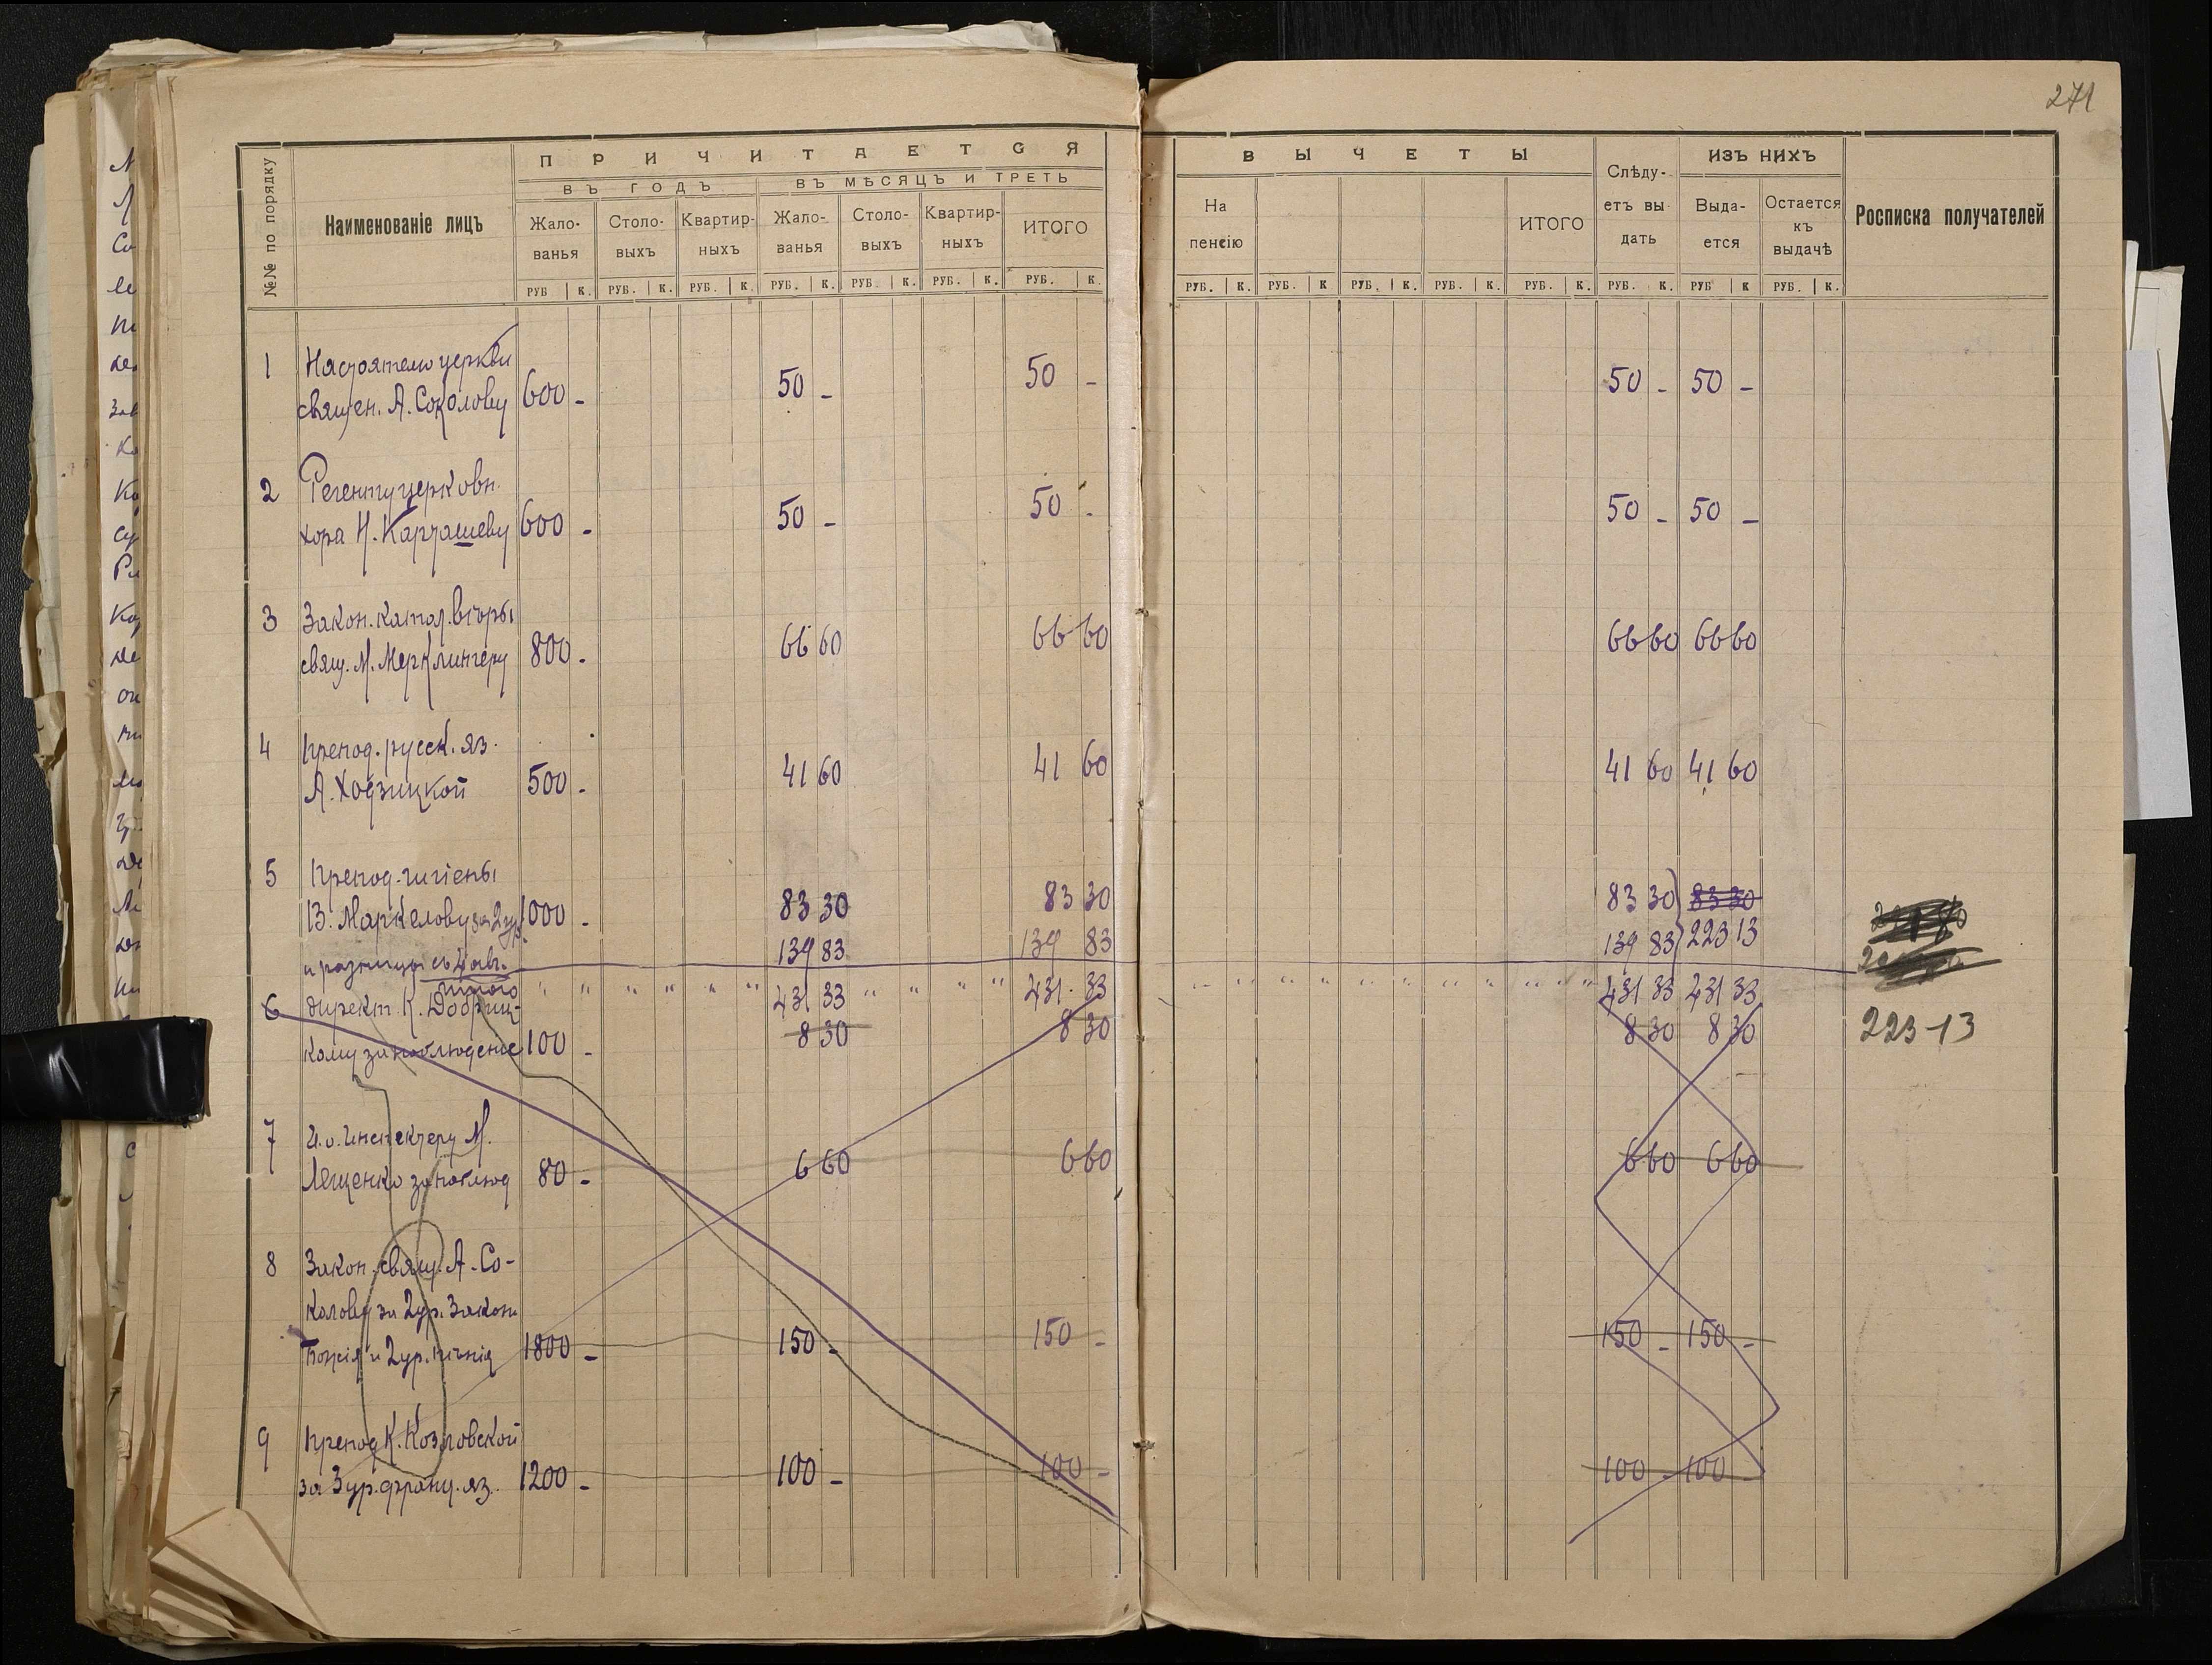 271
№№ по порядку
Наименованіе лицъ
ПРИЧИТАЕТСЯ
ВЪ ГОДЪ
ВЪ МѢСЯЦЪ И ТРЕТЬ
Жало-
ванья
Столо-
выхъ
Квартир-
ныхъ
Жало-
ванья
Столо-
выхъ
Квартир-
ныхъ
ИТОГО
РУБ К. РУБ. К. РУБ. К. РУБ. К. РУБ. К. РУБ. К. РУБ. К.
ВЫЧЕТЫ
На
пенсію
ИТОГО
Слѣду-
етъ вы
дать
ИЗЪ НИХЪ
Выда-
ется
Остается
къ
выдачѣ
Росписка получателей
РУБ. К. РУБ. К РУБ. К. РУБ. К. РУБ. К. РУБ. К. РУБ К РУБ. К.
1 Настоятелю церкви
священ. А. Соколову 600 - 50 - 50 - 50 - 50 -
2 Регенту церковн.
хора Н. Карташеву 600 - 50 - 50 - 50 - 50 -
3 Закон. катол. вѣры
свящ. М. Мерклингеру 800 - 66 60 66 60 66 60 66 60
4 Препод. русск. яз.
А. Ходзицкой 500 - 41 60 41 60 41 60 41 60
5 Препод. гигіены
В. Маркелову за 2 ур. 1000 - 83 30 83 30 83 30 83 30
и разницы съ 4 авг. 139 83 139 83 139 83 223 13
итого 431 33 431 33 431 33 431 33
6 директ. К. Добриц-
кому за наблюдение 100 - 8 30 8 30 8 30 8 30 223-13
7 И.о. инспектору М.
Лещенко за наблюд 80 - 6 60 6 60 6 60 6 60
8 Закон. свящ. А. Со-
колову за 2 ур. Закона
Божія и 2 ур. пѣнія 1800 - 150 - 150 - 150 - 150 -
9 Препод К. Козловской
за 3 ур. франц. яз. 1200 - 100 - 100 - 100 - 100 -